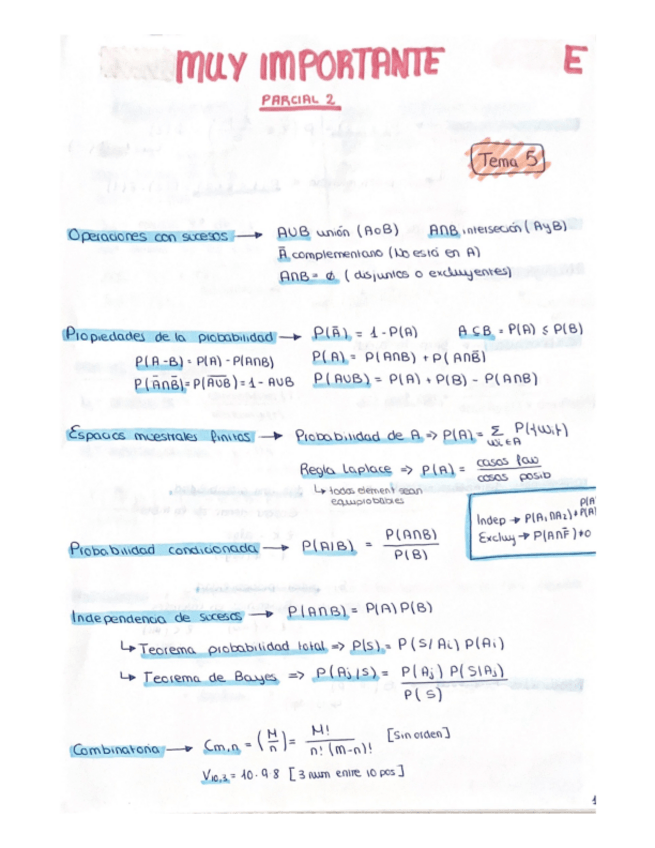 MUY IMPORTANTE E
PARCIAL 2
Tema 5
Operaciones con sucesos → AUB unión (AoB) A∩B intersección (AyB)
Ā complementario (No está en A)
A∩B = ∅ (disjuntos o excluyentes)
Propiedades de la probabilidad → P(Ā) = 1-P(A) A⊆B = P(A) ≤ P(B)
P(A-B) = P(A) - P(A∩B) P(A) = P(A∩B) + P(A∩B̄)
P(Ā∩B̄) = P(A̅U̅B̅) = 1 - AUB P(AUB) = P(A) + P(B) - P(A∩B)
Espacios muestrales finitos → Probabilidad de A => P(A) = Σ P({wi})
wi ∈ A
Regla Laplace => P(A) = casos fav / casos posib
↳ todos element sean
equiprobables
P(A
Indep → P(A₁∩A₂) ≠ P(A)
Excluy → P(A∩F̄) ≠ 0
Probabilidad condicionada → P(A/B) = P(A∩B) / P(B)
Independencia de sucesos → P(A∩B) = P(A)P(B)
↳ Teorema probabilidad total => P(S) = P(S/Ai) P(Ai)
↳ Teorema de Bayes => P(Aj/S) = P(Aj) P(S/Aj) / P(S)
Combinatoria → Cm,n = (M/n) = M! / n! (m-n)! [Sin orden]
V10,3 = 10·9 8 [3 num entre 10 pos]
1